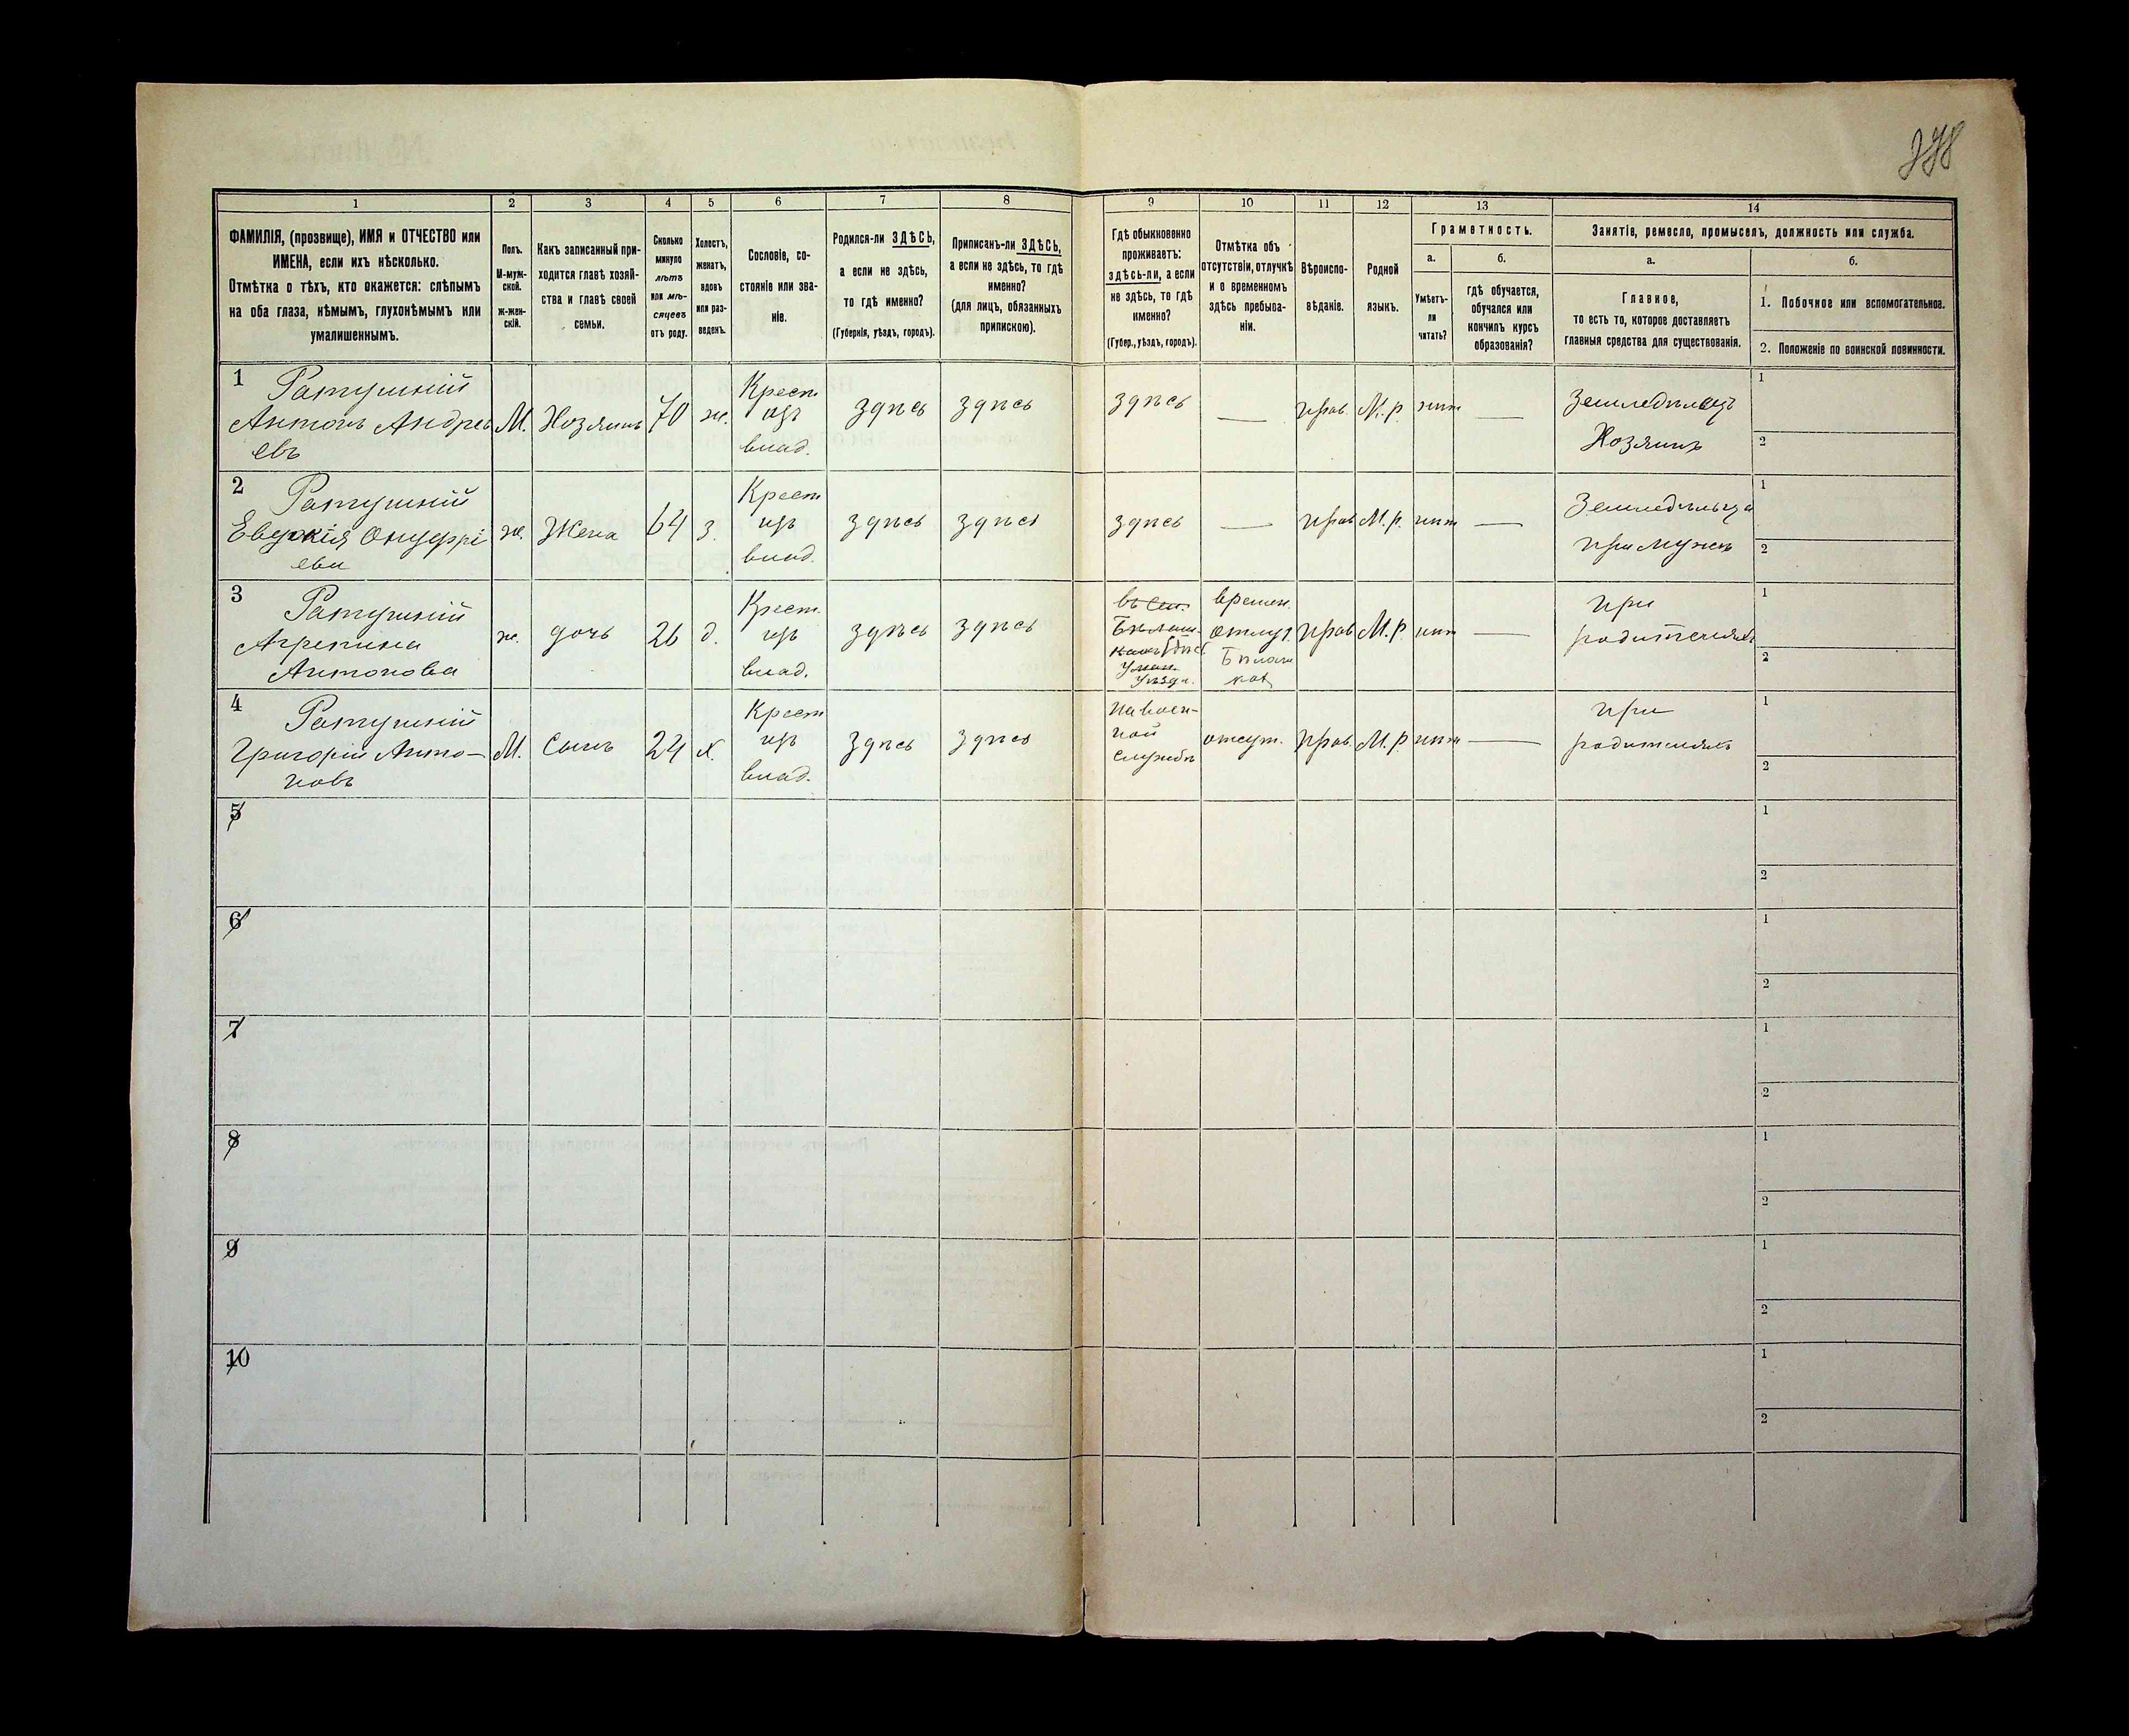 278
1 2 3 4 5 6 7 8 9 10 11 12 13 14
ФАМИЛІЯ, (прозвище), ИМЯ и ОТЧЕСТВО или
ИМЕНА, если ихъ нѣсколько.
Отмѣтка о тѣхъ, кто окажется: слѣпымъ
на оба глаза, нѣмымъ, глухонѣмымъ или
умалишеннымъ.
Полъ.
М-муж-
ской.
ж-жен-
скій.
Какъ записанный при-
ходится главѣ хозяй-
ства и главѣ своей
семьи.
Сколько
минуло
лѣтъ
или мѣ-
сяцевъ
отъ роду.
Холостъ,
женатъ,
вдовъ
или раз-
веденъ.
Сословіе, со-
стояніе или зва-
ніе.
Родился-ли ЗДѢСЬ,
а если не здѣсь,
то гдѣ именно?
(Губернія, уѣздъ, городъ).
Приписанъ-ли ЗДѢСЬ,
а если не здѣсь, то гдѣ
именно?
(для лицъ, обязанныхъ
припискою).
Гдѣ обыкновенно
проживаетъ:
здѣсь-ли, а если
не здѣсь, то гдѣ
именно?
(Губер., уѣздъ, городъ).
Отмѣтка объ
отсутствіи, отлучкѣ
и о временномъ
здѣсь пребыва-
ніи.
Вѣроиспо-
вѣданіе.
Родной
языкъ.
Грамотность.
а.
Умѣетъ-
ли
читать?
б.
гдѣ обучается,
обучался или
кончилъ курсъ
образованія?
Занятіе, ремесло, промыселъ, должность или служба.
а.
Главное,
то есть то, которое доставляетъ
главныя средства для существованія.
б.
1. Побочное или вспомогательное.
2. Положеніе по воинской повинности.
1 Ратушній
Антонъ Андре
евъ
М. Хозяинъ 70 ж.
Крест
изъ
влад.
здѣсь здѣсь здѣсь — прав. М.р. нѣт —
Земледѣлецъ
Хозяинъ
1
2
2 Ратушній
Евдокія Онуфрі
ева
ж. Жена 64 з.
Крест
изъ
влад.
здѣсь здѣсь здѣсь — прав М.р. нѣт —
Земледѣлица
при мужѣ
1
2
3 Ратушній
Агрепина
Антонова
ж. дочь 26 д.
Крест.
изъ
влад.
здѣсь здѣсь
въ сел.
Уман.
Уѣзда.
времен.
отлуч.
прав М.р. нѣт —
при
родителяхъ
1
2
4 Ратушній
Григорій Анто-
новъ
М. Сынъ 24 х.
Крест
изъ
влад.
здѣсь здѣсь
на воен-
ной
службѣ
отсут. прав М.р. нѣт —
при
родителяхъ
1
2
5
1
2
6
1
2
7
1
2
8
1
2
9
1
2
10
1
2